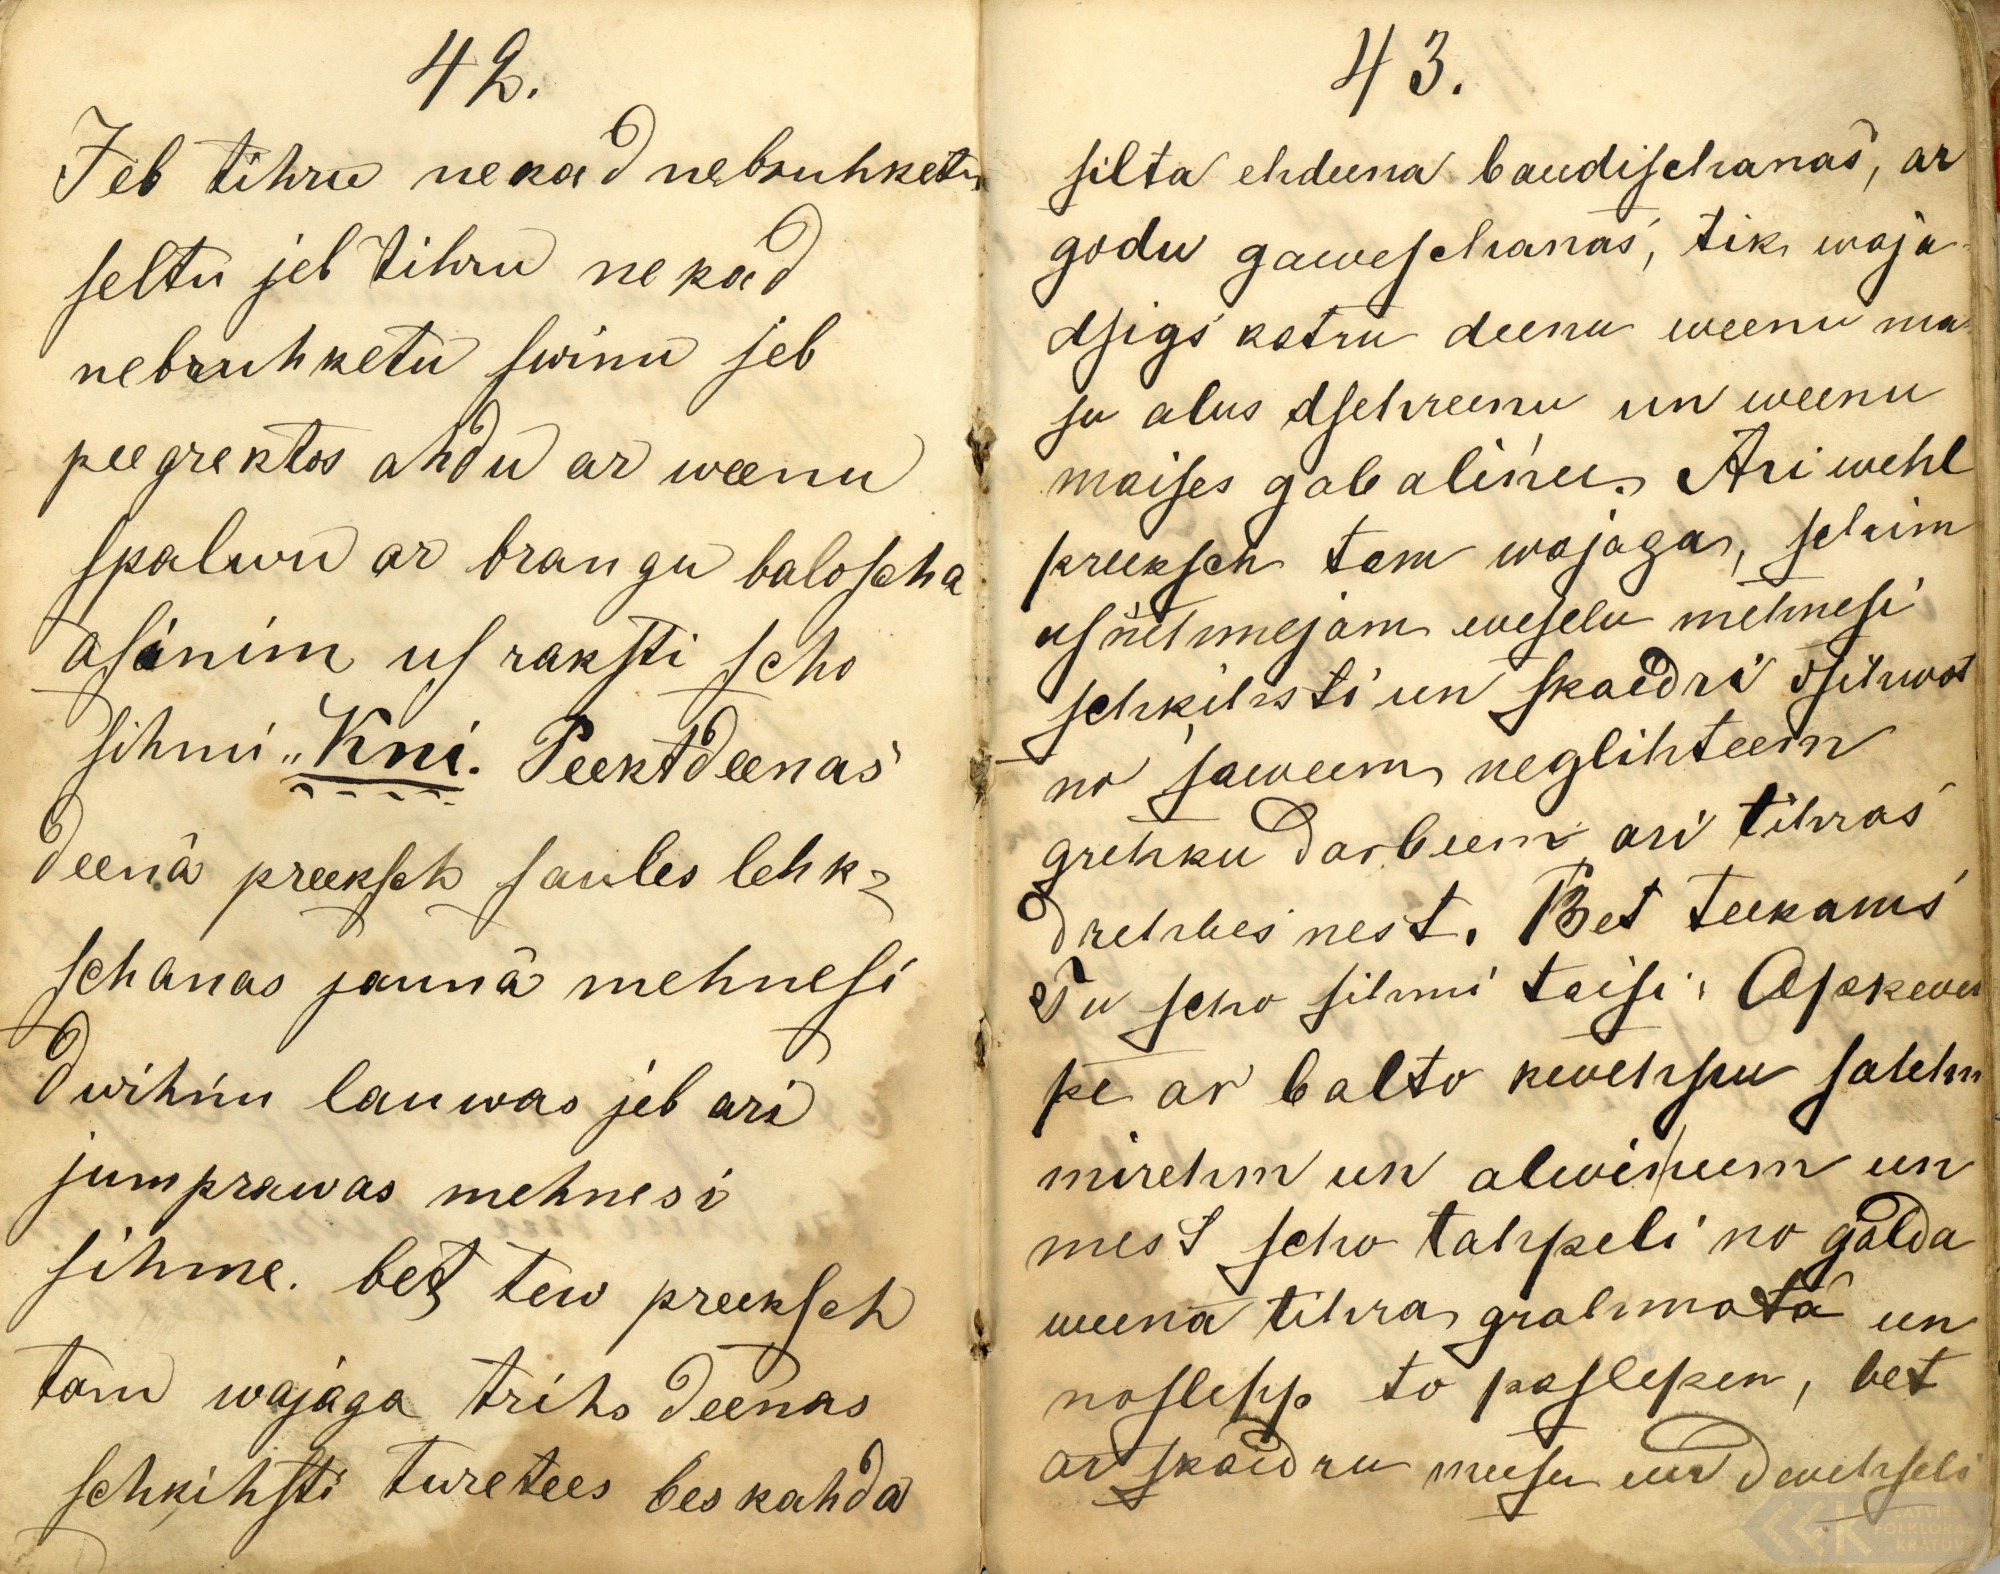 42.
Jeb tihru nekad nebruhketu
seltu jeb tihru nekad
nebruhketu swinu jeb
peegrektos ahdu ar weenu
spalwu ar brangu baloscha
asinim usraksti scho
sihmi „Kni. Peektdeenas
deenâ preeksch saules lehk-
schanas jaunâ mehnesi
dwihņu lauwas jeb ari
jumprawas mehnesi
sihme. bet tew preeksch
tam wajaga trihs deenas
schkihsti turetees bes kahda
43.
silta ehdeena baudischanas, ar
godu gaweschanas, tik waja-
dsigs katru deenu weenu ma-
su alus dsehreenu un weenu
maises gabaliņu. Ari wehl
preeksch tam wajaga, schim
usņehmejam weselu mehnesi
schkihsti un skaidri dsihwot
no saweem neglihteem
grehku darbeem ari tihras
drehbes nest. Bet teekams
Tu scho sihmi taisi: Apskewe
pe ar balto kwehpu salehm
mirehm un alwiņeem un
mest scho tahpeli no galda
weena tihra grahmatâ un
noslepp to paslepen, bet
ar skaidru meesu un dwehseli
LATVIEŠU
FOLKLORAS
KRĀTUVE